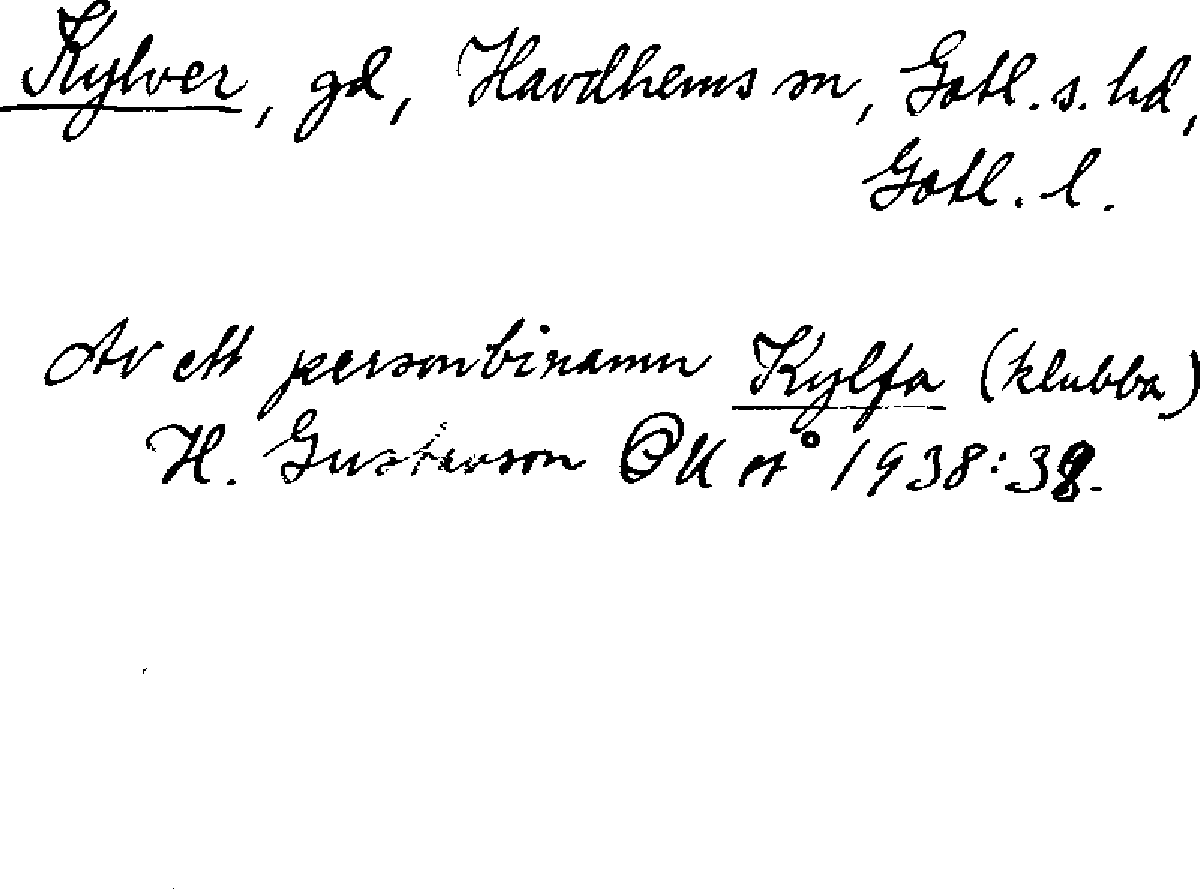 Kylver, gd, Havdhems sn, Gotl. s. hd,
Gotl. l.
Av ett personbinamn Kylfa (klubba)
H. Gustavson 1938:38.